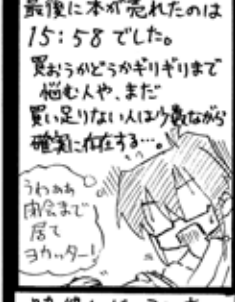 最後に本が売れたのは
15:58でした。
買おうかどうかギリギリまで
悩む人や、まだ
買い足りない人は少数ながら
確実に存在する…。
うわああ
閉会まで
居て
ヨカッター!